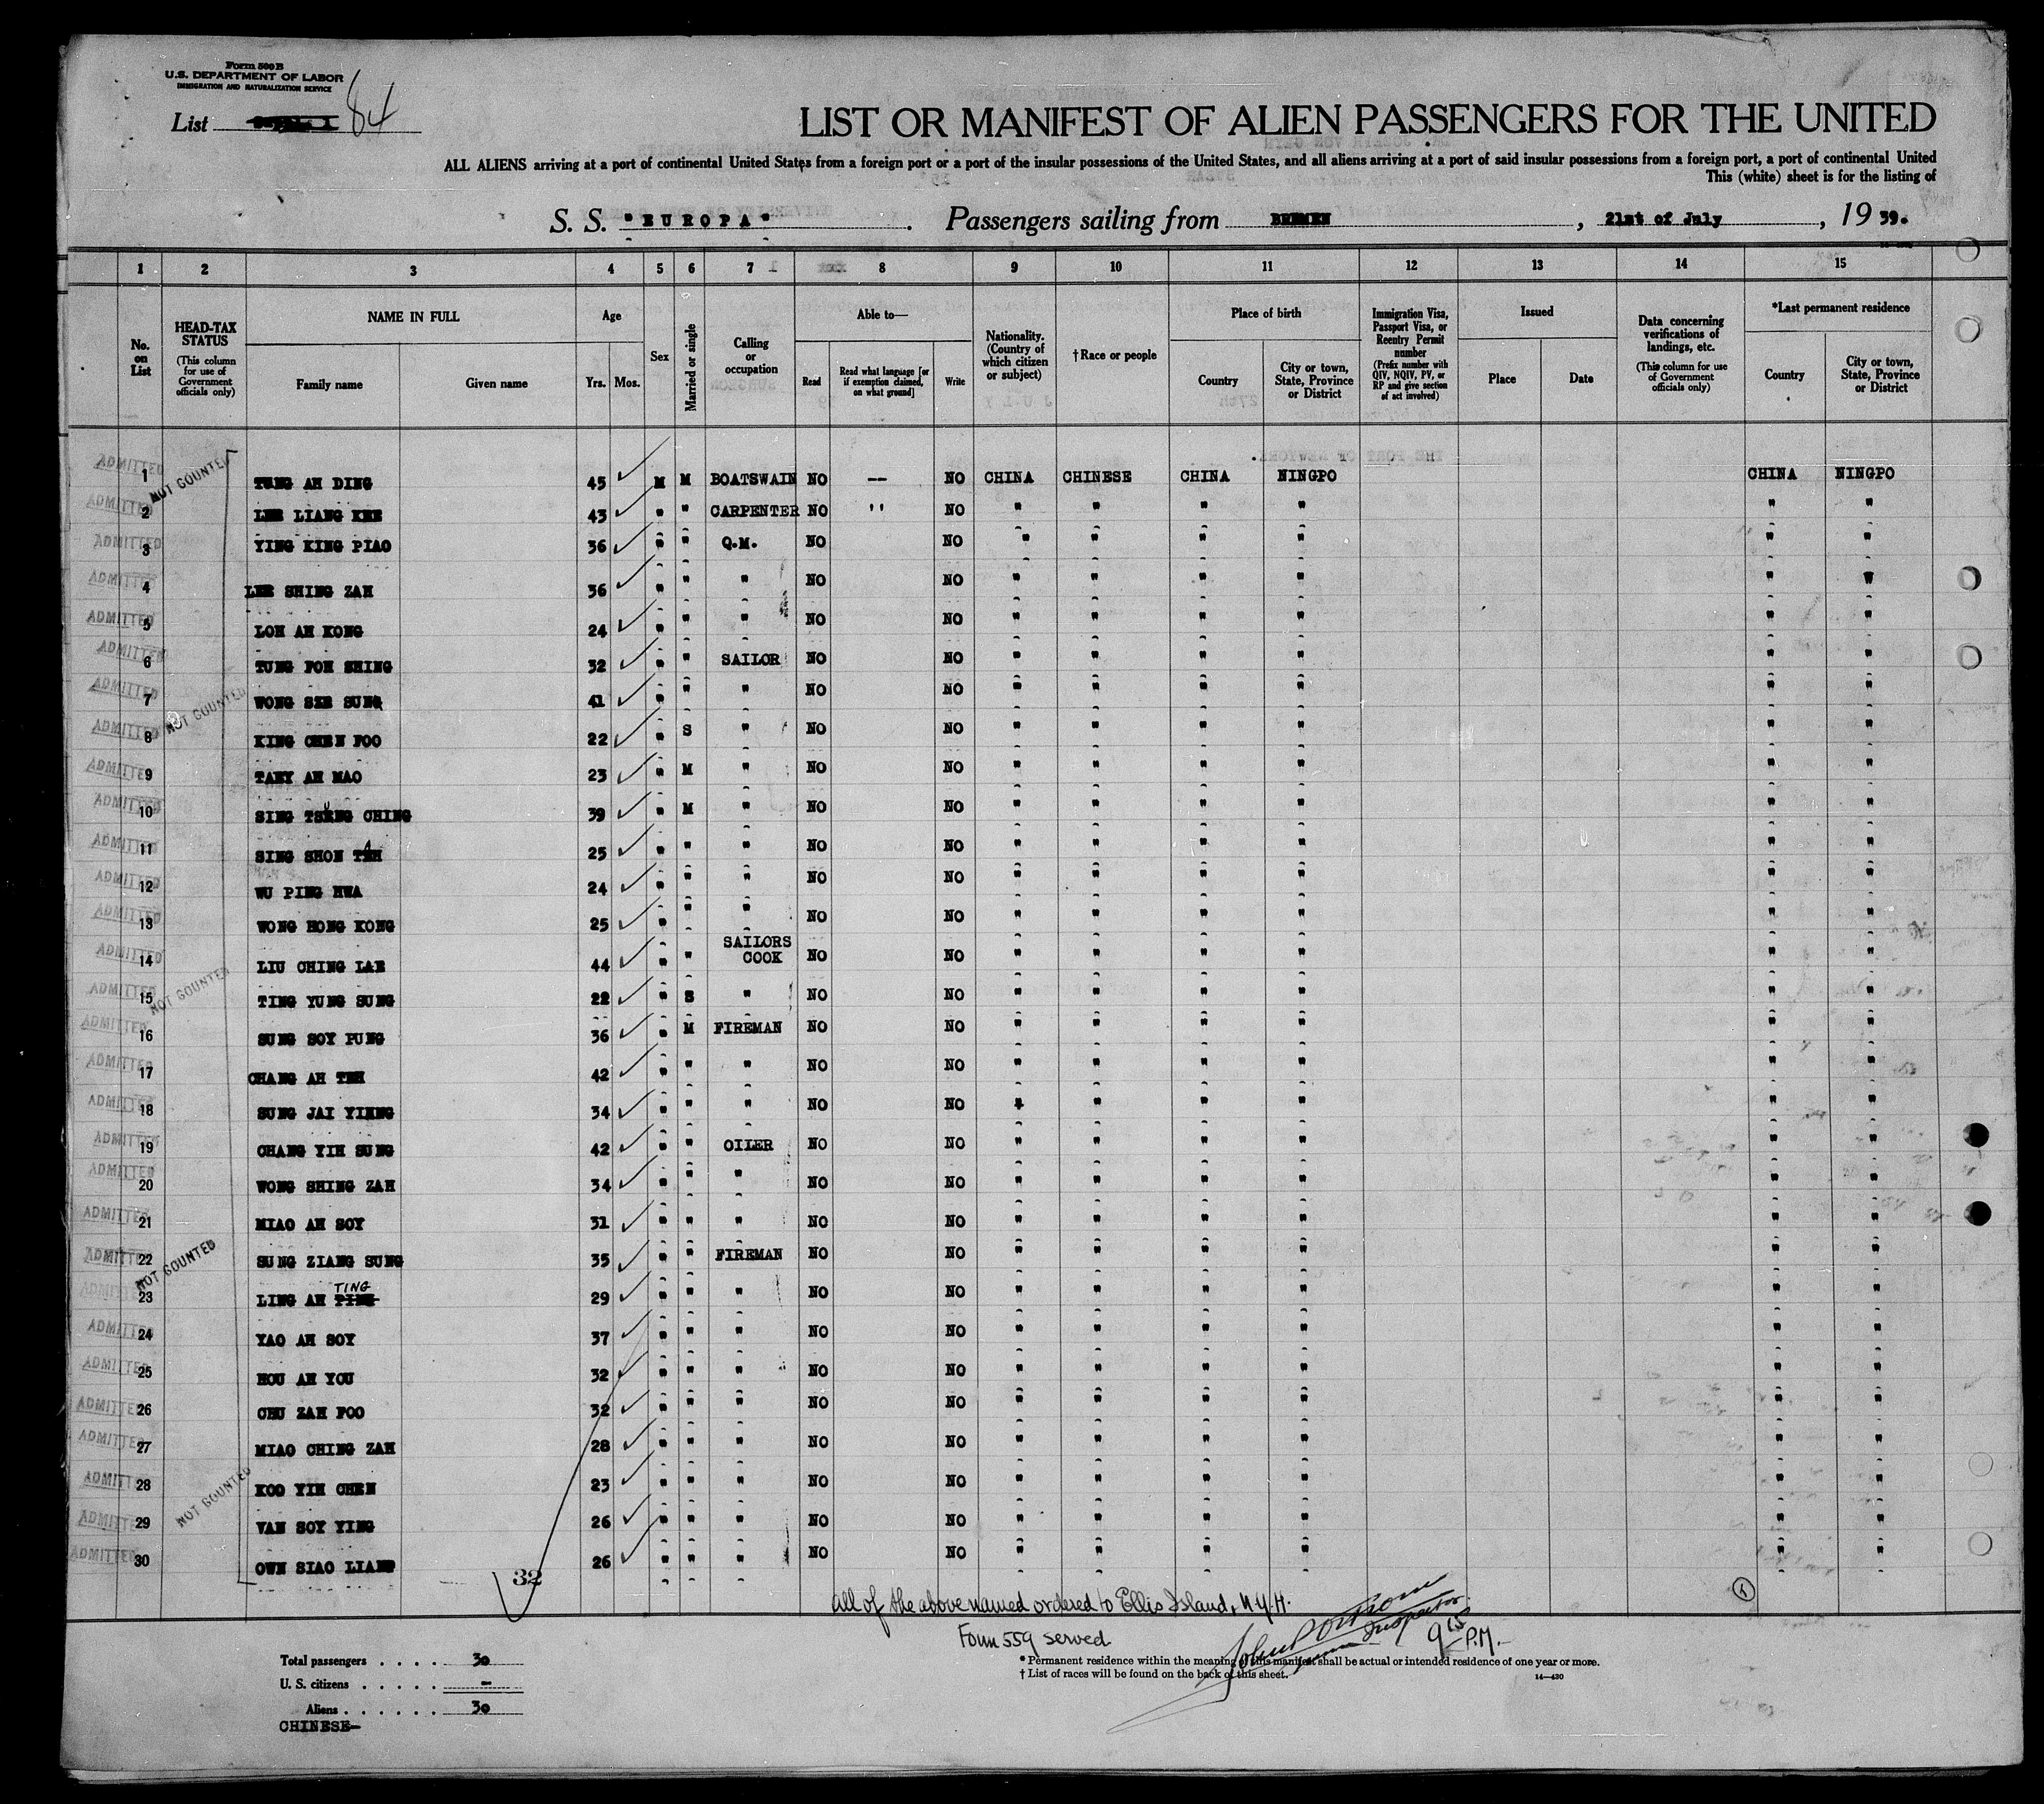 Form 500B
U.S. DEPARTMENT OF LABOR
IMMIGRATION AND NATURALIZATION SERVICE
List 84
LIST OR MANIFEST OF ALIEN PASSENGERS FOR THE UNITED
ALL ALIENS arriving at a port of continental United States from a foreign port or a port of the insular possessions of the United States, and all aliens arriving at a port of said insular possessions from a foreign port, a port of continental United
This (white) sheet is for the listing of
S. S. "EUROPA". Passengers sailing from BREMEN, 21st of July, 1939.
1 2 3 4 5 6 7 8 9 10 11 12 13 14 15
No. on List
HEAD-TAX STATUS (This column for use of Government officials only)
NAME IN FULL Family name Given name
Age Yrs. Mos.
Sex
Married or single
Calling or occupation
Able to— Read Read what language [or if exemption claimed, on what ground] Write
Nationality. (Country of which citizen or subject)
†Race or people
Place of birth Country City or town, State, Province or District
Immigration Visa, Passport Visa, or Reentry Permit number (Prefix number with QIV, NQIV, PV, or RP and give section of act involved)
Issued Place Date
Data concerning verifications of landings, etc. (This column for use of Government officials only)
*Last permanent residence Country City or town, State, Province or District
ADMITTED 1 NOT COUNTED TUNG AH DING 45 M M BOATSWAIN NO -- NO CHINA CHINESE CHINA NINGPO CHINA NINGPO
ADMITTED 2 LEE LIANG KEE 43 " " CARPENTER NO '' NO " " " " " "
ADMITTED 3 YING KING PIAO 36 " " Q.M. NO NO " " " " " "
ADMITTED 4 LEE SHING ZAH 36 " " " NO NO " " " " " "
ADMITTED 5 LOH AH KONG 24 " " " NO NO " " " " " "
ADMITTED 6 TUNG FOH SHING 32 " " SAILOR NO NO " " " " " "
ADMITTED 7 NOT COUNTED WONG SZE SUNG 41 " " " NO NO " " " " " "
ADMITTED 8 KING CHEN FOO 22 " S " NO NO " " " " " "
ADMITTED 9 TAEY AH MAO 23 " M " NO NO " " " " " "
ADMITTED 10 SING TSUNG CHING 39 " M " NO NO " " " " " "
ADMITTED 11 SING SHON TAH 25 " " " NO NO " " " " " "
ADMITTED 12 WU PING HWA 24 " " " NO NO " " " " " "
ADMITTED 13 WONG HONG KONG 25 " " " NO NO " " " " " "
ADMITTED 14 LIU CHING LAE 44 " " SAILORS COOK NO NO " " " " " "
ADMITTED 15 NOT COUNTED TING YUNG SUNG 22 " S " NO NO " " " " " "
ADMITTED 16 SUNG SOY PUNG 36 " M FIREMAN NO NO " " " " " "
ADMITTED 17 CHANG AH TEH 42 " " " NO NO " " " " " "
ADMITTED 18 SUNG JAI YIENG 34 " " " NO NO " " " " " "
ADMITTED 19 CHANG YIH SUNG 42 " " OILER NO NO " " " " " "
ADMITTED 20 WONG SHING ZAH 34 " " " NO NO " " " " " "
ADMITTED 21 MIAO AH SOY 31 " " " NO NO " " " " " "
ADMITTED 22 NOT COUNTED SUNG ZIANG SUNG 35 " " FIREMAN NO NO " " " " " "
ADMITTED 23 LING AH TING 29 " " " NO NO " " " " " "
ADMITTED 24 YAO AH SOY 37 " " " NO NO " " " " " "
ADMITTED 25 HOU AH YOU 32 " " " NO NO " " " " " "
ADMITTED 26 CHU ZAH FOO 32 " " " NO NO " " " " " "
ADMITTED 27 MIAO CHING ZAH 28 " " " NO NO " " " " " "
ADMITTED 28 NOT COUNTED KOO YIH CHEN 23 " " " NO NO " " " " " "
ADMITTED 29 VAN SOY YING 26 " " " NO NO " " " " " "
ADMITTED 30 OWN SIAO LIANG 26 " " " NO NO " " " " " "
32
all of the above named ordered to Ellis Island, N.Y.H.
Form 559 served
Inspector 9 15 P.M.
Total passengers . . . . 30
U. S. citizens . . . . . -
Aliens . . . . . . 30
CHINESE-
* Permanent residence within the meaning of this manifest shall be actual or intended residence of one year or more.
† List of races will be found on the back of this sheet.
14—430